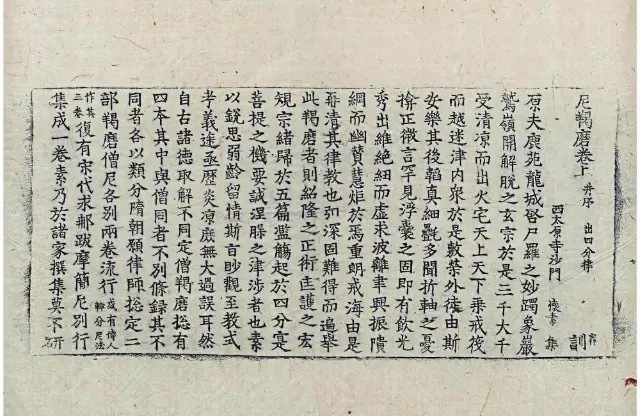 尼羯磨卷上 并序 出四分律
西太原寺沙門 懷素 集
訓
原夫鹿苑龍城啓尸羅之妙躅象巖
鷲嶺開解脫之玄宗於是三千大千
受清凉而出火宅天上天下乘戒筏
而越迷津內衆於是敷榮外徒由斯
安樂其後韜真細㲲多聞折軸之憂
揜正微言罕見浮囊之固即有飲光
秀出維絶紐而虛求波離聿興振隤
綱而幽賛慧炬於焉重朗戒海由是
再清其律教也弘深固難得而遍舉
此羯磨者則紹隆之正術匡護之宏
規宗緒歸於五篇濫觴起於四分寔
菩提之機要誠涅槃之津涉者也素
以銳思弱齡留情斯旨眇觀至教式
考義途亟歷炎凉庶無大過誤耳然
自古諸德取解不同定僧羯磨捴有
四本其中與僧同者不別條錄其不
同者各以類分隋朝願律師捴定二
部羯磨僧尼各別兩卷流行 或有傍人輒分尼法
作其三卷 復有宋代求那跋摩蕳尼別行
集成一卷素乃於諸家撰集莫不研